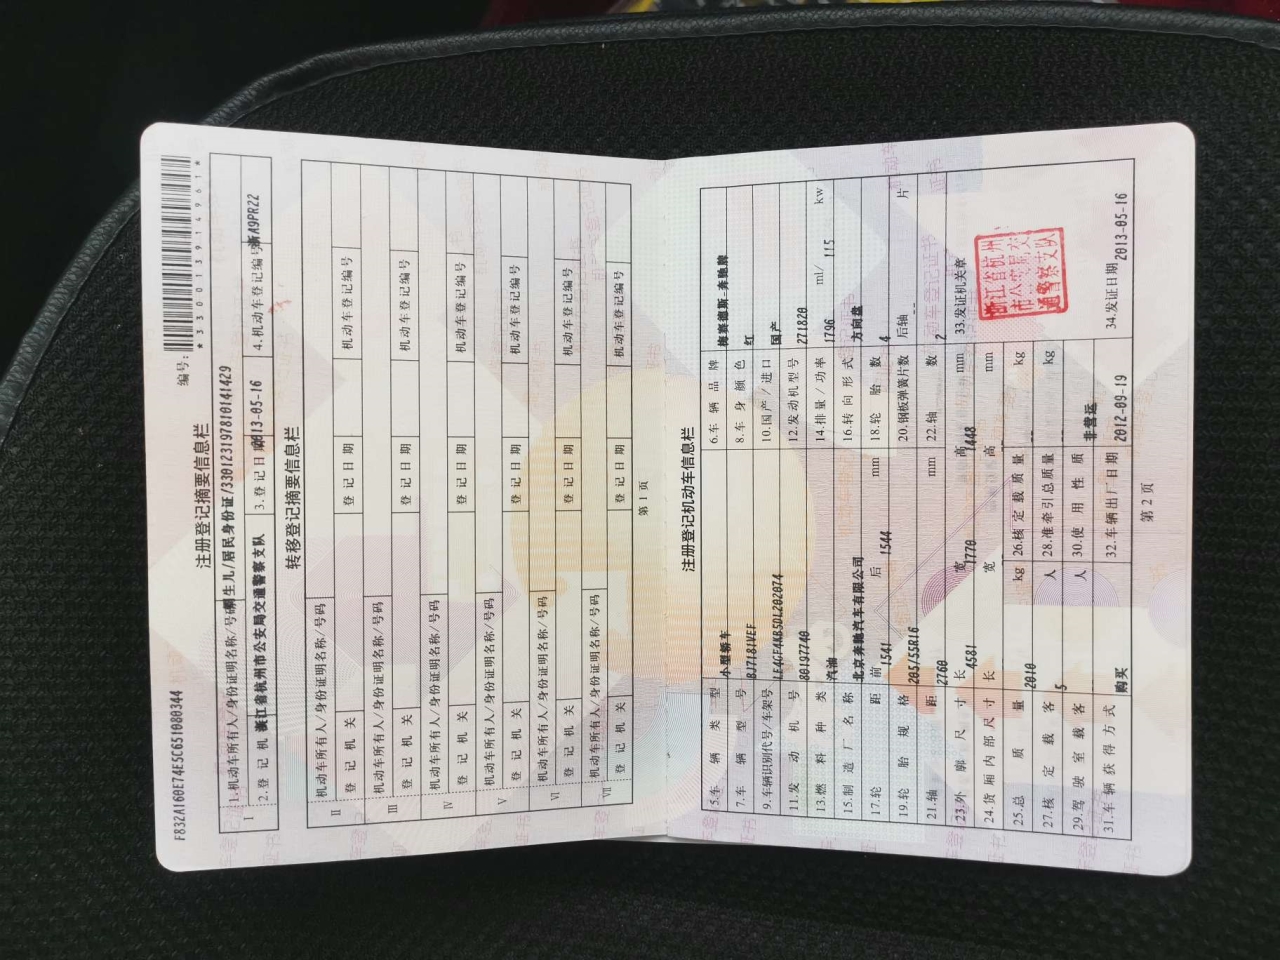 F832A160E74E5C651080344
编号:
*330013914961*
注册登记摘要信息栏
Ⅰ 1.机动车所有人/身份证明名称/号码 生儿/居民身份证/330123197810141429
2.登记机关 浙江省杭州市公安局交通警察支队 3.登记日期 2013-05-16 4.机动车登记编号 浙A9PR22
转移登记摘要信息栏
Ⅱ 机动车所有人/身份证明名称/号码
登记机关 登记日期 机动车登记编号
Ⅲ 机动车所有人/身份证明名称/号码
登记机关 登记日期 机动车登记编号
Ⅳ 机动车所有人/身份证明名称/号码
登记机关 登记日期 机动车登记编号
Ⅴ 机动车所有人/身份证明名称/号码
登记机关 登记日期 机动车登记编号
Ⅵ 机动车所有人/身份证明名称/号码
登记机关 登记日期 机动车登记编号
Ⅶ 机动车所有人/身份证明名称/号码
登记机关 登记日期 机动车登记编号
第 1 页
注册登记机动车信息栏
5.车辆类型 小型轿车 6.车辆品牌 梅赛德斯-奔驰牌
7.车辆型号 BJ7181VEF 8.车身颜色 红
9.车辆识别代号/车架号 LE4GF4KB5DL202074 10.国产/进口 国产
11.发动机号 80197740 12.发动机型号 271820
13.燃料种类 汽油 14.排量/功率 1796 ml/ 115 kw
15.制造厂名称 北京奔驰汽车有限公司 16.转向形式 方向盘
17.轮距 前 1541 后 1544 mm 18.轮胎数 4
19.轮胎规格 205/55R16 20.钢板弹簧片数 后轴 -- 片
21.轴距 2760 mm 22.轴数 2
23.外廓尺寸 长 4581 宽 1770 高 1448 mm 33.发证机关章
24.货厢内部尺寸 长 宽 高 mm
25.总质量 2010 kg 26.核定载质量 -- kg
27.核定载客 5 人 28.准牵引总质量 -- kg
29.驾驶室载客 人 30.使用性质 非营运
31.车辆获得方式 购买 32.车辆出厂日期 2012-09-19 34.发证日期 2013-05-16
浙江省杭州
市公安局交
通警察支队
第 2 页